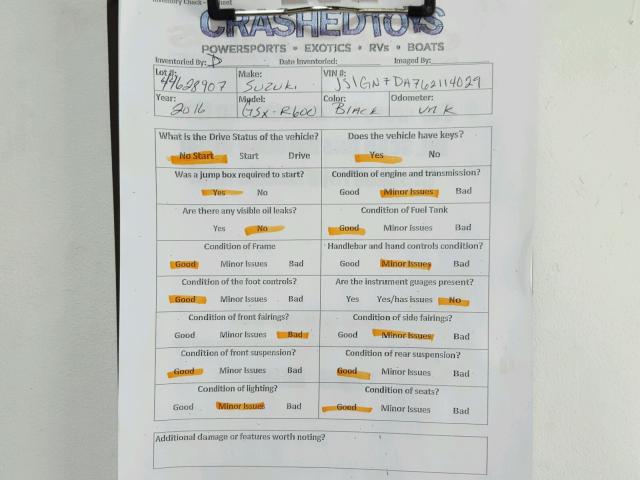 Inventory Check - Sheet
CRASHEDTOYS
POWERSPORTS • EXOTICS • RVs • BOATS
Inventoried By: D Date Inventoried: Imaged By:
Lot #: Make: VIN #:
44628907 SUZUKI JS1GN7DA7G2114029
Year: Model: Color: Odometer:
2016 GSX-R600 BLACK UNK
What is the Drive Status of the vehicle? Does the vehicle have keys?
No Start Start Drive Yes No
Was a jump box required to start? Condition of engine and transmission?
Yes No Good Minor Issues Bad
Are there any visible oil leaks? Condition of Fuel Tank
Yes No Good Minor Issues Bad
Condition of Frame Handlebar and hand controls condition?
Good Minor Issues Bad Good Minor Issues Bad
Condition of the foot controls? Are the instrument guages present?
Good Minor Issues Bad Yes Yes/has issues No
Condition of front fairings? Condition of side fairings?
Good Minor Issues Bad Good Minor Issues Bad
Condition of front suspension? Condition of rear suspension?
Good Minor Issues Bad Good Minor Issues Bad
Condition of lighting? Condition of seats?
Good Minor Issues Bad Good Minor Issues Bad
Additional damage or features worth noting?